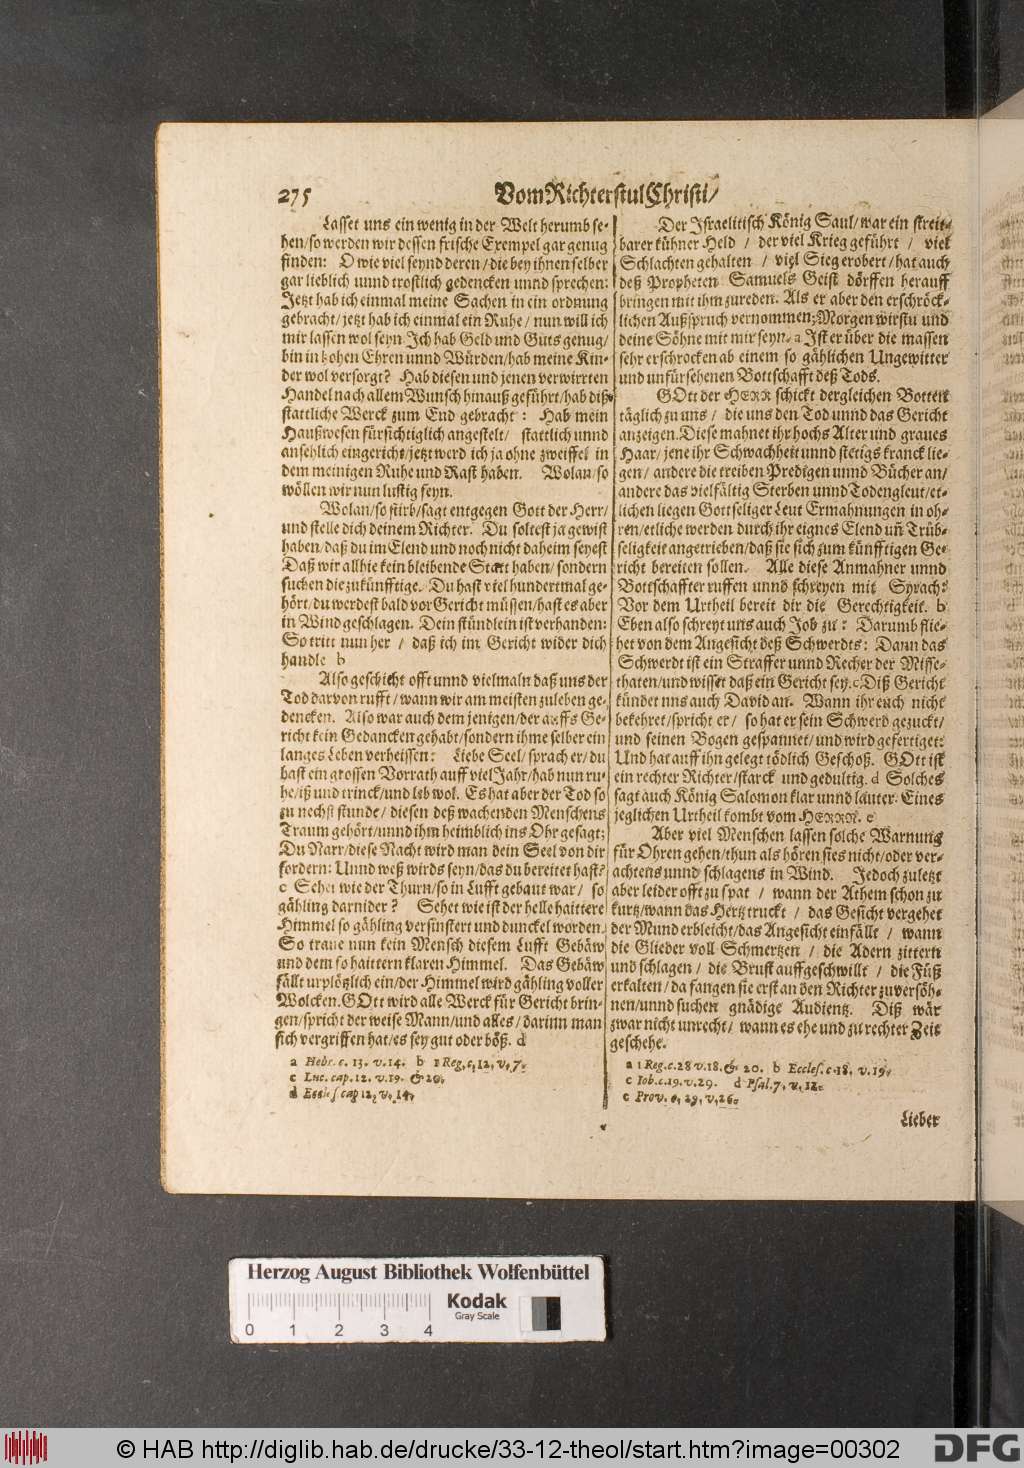 275
Vom Richterstul Christi/
Lasset uns ein wenig in der Welt herumb se-
hen/so werden wir dessen frische Exempel gar genug
finden: O wie viel seynd deren/die bey ihnen selber
gar lieblich unnd trostlich gedencken unnd sprechen:
Jetzt hab ich einmal meine Sachen in ein ordnung
gebracht/jetzt hab ich einmal ein Ruhe/nun will ich
mir lassen wol seyn. Ich hab Geld und Guts genug/
bin in hohen Ehren unnd Würden/hab meine Kin-
der wol versorgt? Hab diesen und jenen verwirrten
Handel nach allem Wunsch hinauß geführt/hab diß
stattliche Werck zum End gebracht: Hab mein
Haußwesen fürsichtiglich angestelt/ stattlich unnd
ansehlich eingericht/jetzt werd ich ja ohne zweiffel in
dem meinigen Ruhe und Rast haben. Wolan/so
wöllen wir nun lustig seyn.
Wolan/so stirb/sagt entgegen Gott der Herr/
und stelle dich deinem Richter. Du soltest ja gewist
haben/daß du im Elend und noch nicht daheim seyest
Daß wir allhie kein bleibende Statt haben/sondern
suchen die zukünfftige. Du hast viel hundertmal ge-
hört/du werdest bald vor Gericht müssen/hast es aber
in Wind geschlagen. Dein stündlein ist verhanden:
So tritt nun her / daß ich im Gericht wider dich
handle b
Also geschicht offt unnd vielmaln daß uns der
Tod darvon rufft/wann wir am meisten zuleben ge-
dencken. Also war auch dem jenigen/der auffs Ge-
richt kein Gedancken gehabt/sondern ihme selber ein
langes Leben verheissen: Liebe Seel/sprach er/du
hast ein grossen Vorrath auff viel Jahr/hab nun ru-
he/iß und trinck/und leb wol. Es hat aber der Tod so
zu nechst stunde/diesen deß wachenden Menschens
Traum gehört/unnd ihm heimblich ins Ohr gesagt;
Du Narr/diese Nacht wird man dein Seel von dir
fordern: Unnd weß wirds seyn/das du bereitet hast?
c Sehet wie der Thurn/so in Lufft gebaut war/ so
gähling darnider? Sehet wie ist der helle haittere
Himmel so gähling versinstert und dunckel worden.
So traue nun kein Mensch diesem Lufft Gebäw
und dem so haittern klaren Himmel. Das Gebäw
fällt urplötzlich ein/der Himmel wird gähling voller
Wolcken. GOtt wird alle Werck für Gericht brin-
gen/spricht der weise Mann/und alles/darinn man
sich vergriffen hat/es sey gut oder böß. d
a Hebr. c. 13. v. 14. b 1 Reg. c, 12, v, 7.
c Luc. cap. 12. v. 19. & 20.
d Eccles. cap 12, v, 14,
Der Israelitisch König Saul/war ein streit-
barer kühner Held / der viel Krieg geführt / viel
Schlachten gehalten / viel Sieg erobert/hat auch
deß Propheten Samuels Geist dörffen herauff
bringen mit ihm zureden. Als er aber den erschröck-
lichen Außspruch vernommen; Morgen wirstu und
deine Söhne mit mir seyn. a Ist er über die massen
sehr erschrocken ab einem so gählichen Ungewitter
und unfürsehenen Bottschafft deß Tods.
GOtt der HERR schickt dergleichen Botten
täglich zu uns / die uns den Tod unnd das Gericht
anzeigen. Diese mahnet ihr hochs Alter und graues
Haar/jene ihr Schwachheit unnd stetigs kranck lie-
gen/ andere die treiben Predigen unnd Bücher an/
andere das vielfältig Sterben unnd Todengleut/et-
lichen liegen Gottseliger Leut Ermahnungen in oh-
ren/etliche werden durch ihr eignes Elend uñ Trüb-
seligkeit angetrieben/daß sie sich zum künfftigen Ge-
richt bereiten sollen. Alle diese Anmahner unnd
Bottschaffter ruffen unnd schreyen mit Syrach:
Vor dem Urtheil bereit dir die Gerechtigkeit. b
Eben also schreyt uns auch Job zu: Darumb flie-
het von dem Angesicht deß Schwerdts: Dann das
Schwerdt ist ein Straffer unnd Recher der Misse-
thaten/und wisset daß ein Gericht sey. c. Diß Gericht
kündet uns auch David an. Wann ihr euch nicht
bekehret/spricht er/ so hat er sein Schwerd gezuckt/
und seinen Bogen gespannet/und wird gefertiget:
Und hat auff ihn gelegt tödlich Geschoß. GOtt ist
ein rechter Richter/starck und gedultig. d Solches
sagt auch König Salomon klar unnd lauter. Eines
jeglichen Urtheil kombt vom HERRN. e
Aber viel Menschen lassen solche Warnung
für Ohren gehen/thun als hören sies nicht/oder ver-
achtens unnd schlagens in Wind. Jedoch zuletzt
aber leider offt zu spat / wann der Athem schon zu
kurtz/wann das Hertz truckt / das Gesicht vergehet
der Mund erbleicht/das Angesicht einfällt / wann
die Glieder voll Schmertzen / die Adern zittern
und schlagen / die Brust auffgeschwillt / die Füß
erkalten/da fangen sie erst an den Richter zuversöh-
nen/unnd suchen gnädige Audientz. Diß wär
zwar nicht unrecht/ wann es ehe und zu rechter Zeit
geschehe.
a 1 Reg. c. 28 v. 18. & 20. b Eccles. c. 18. v. 19.
c Iob. c. 19. v. 29. d Psal. 7, v, 12.
c Prov. c, 29, v, 26.
Lieber
Herzog August Bibliothek Wolfenbüttel
Kodak
Gray Scale
0 1 2 3 4
© HAB http://diglib.hab.de/drucke/33-12-theol/start.htm?image=00302
DFG